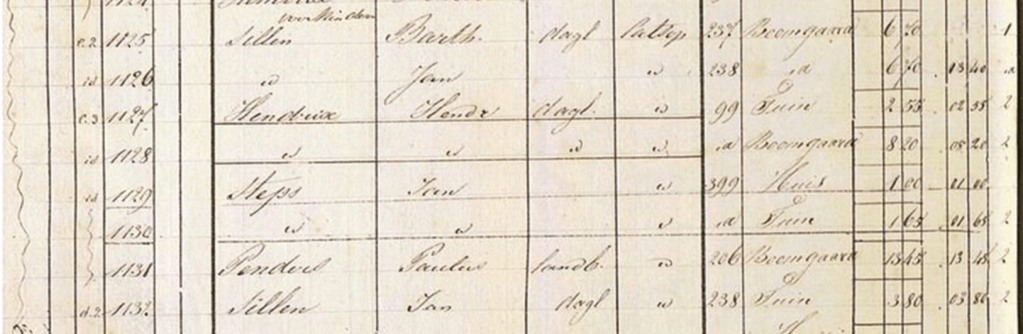 1124
voor Kinderen
c.2 1125 Sillen Barth. dagl Catsop 237 Boomgaard 6 70 1
id 1126 id Jan id 238 id 6 70 13 40 id
c.3 1127 Hendrix Hendr dagl. id 99 Tuin 2 55 02 55 2
id 1128 id id id id id Boomgaard 8 20 08 20 2
id 1129 Steps Jan id 399 Huis 1 00 01 00
1130 id id id id Tuin 1 65 01 65 2
1131 Penders Paulus landb. id 206 Boomgaard 13 45 13 45 2
d.2 1132 Sillen Jan dagl id 238 Tuin 3 80 03 80 2